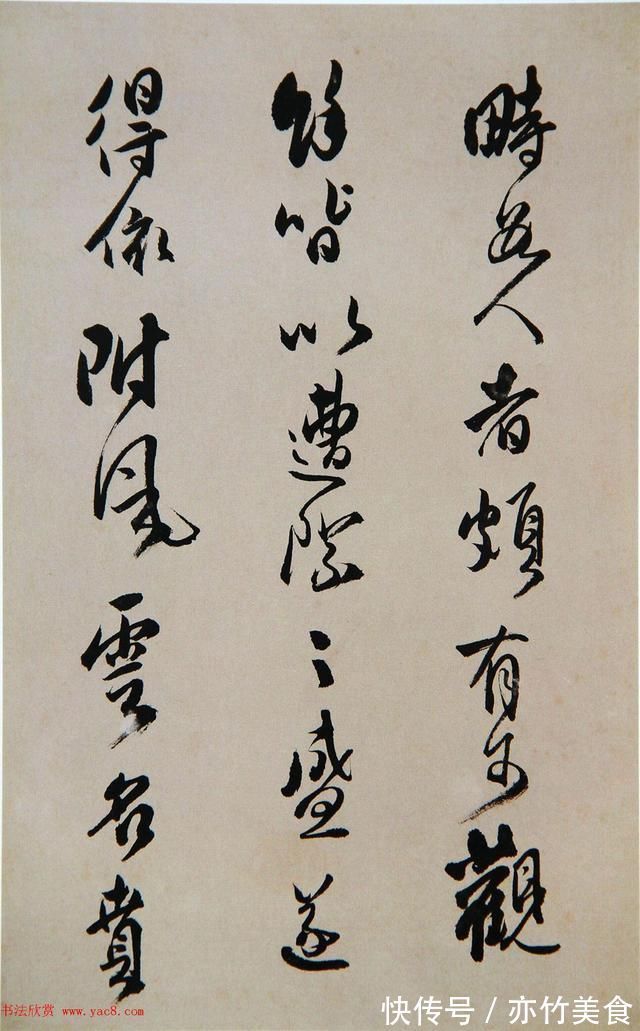 畤若人者頗有可觀
餘皆以遭際之盛遂
得依附風雲名
书法欣赏 www.yac8.com
快传号/亦竹美食